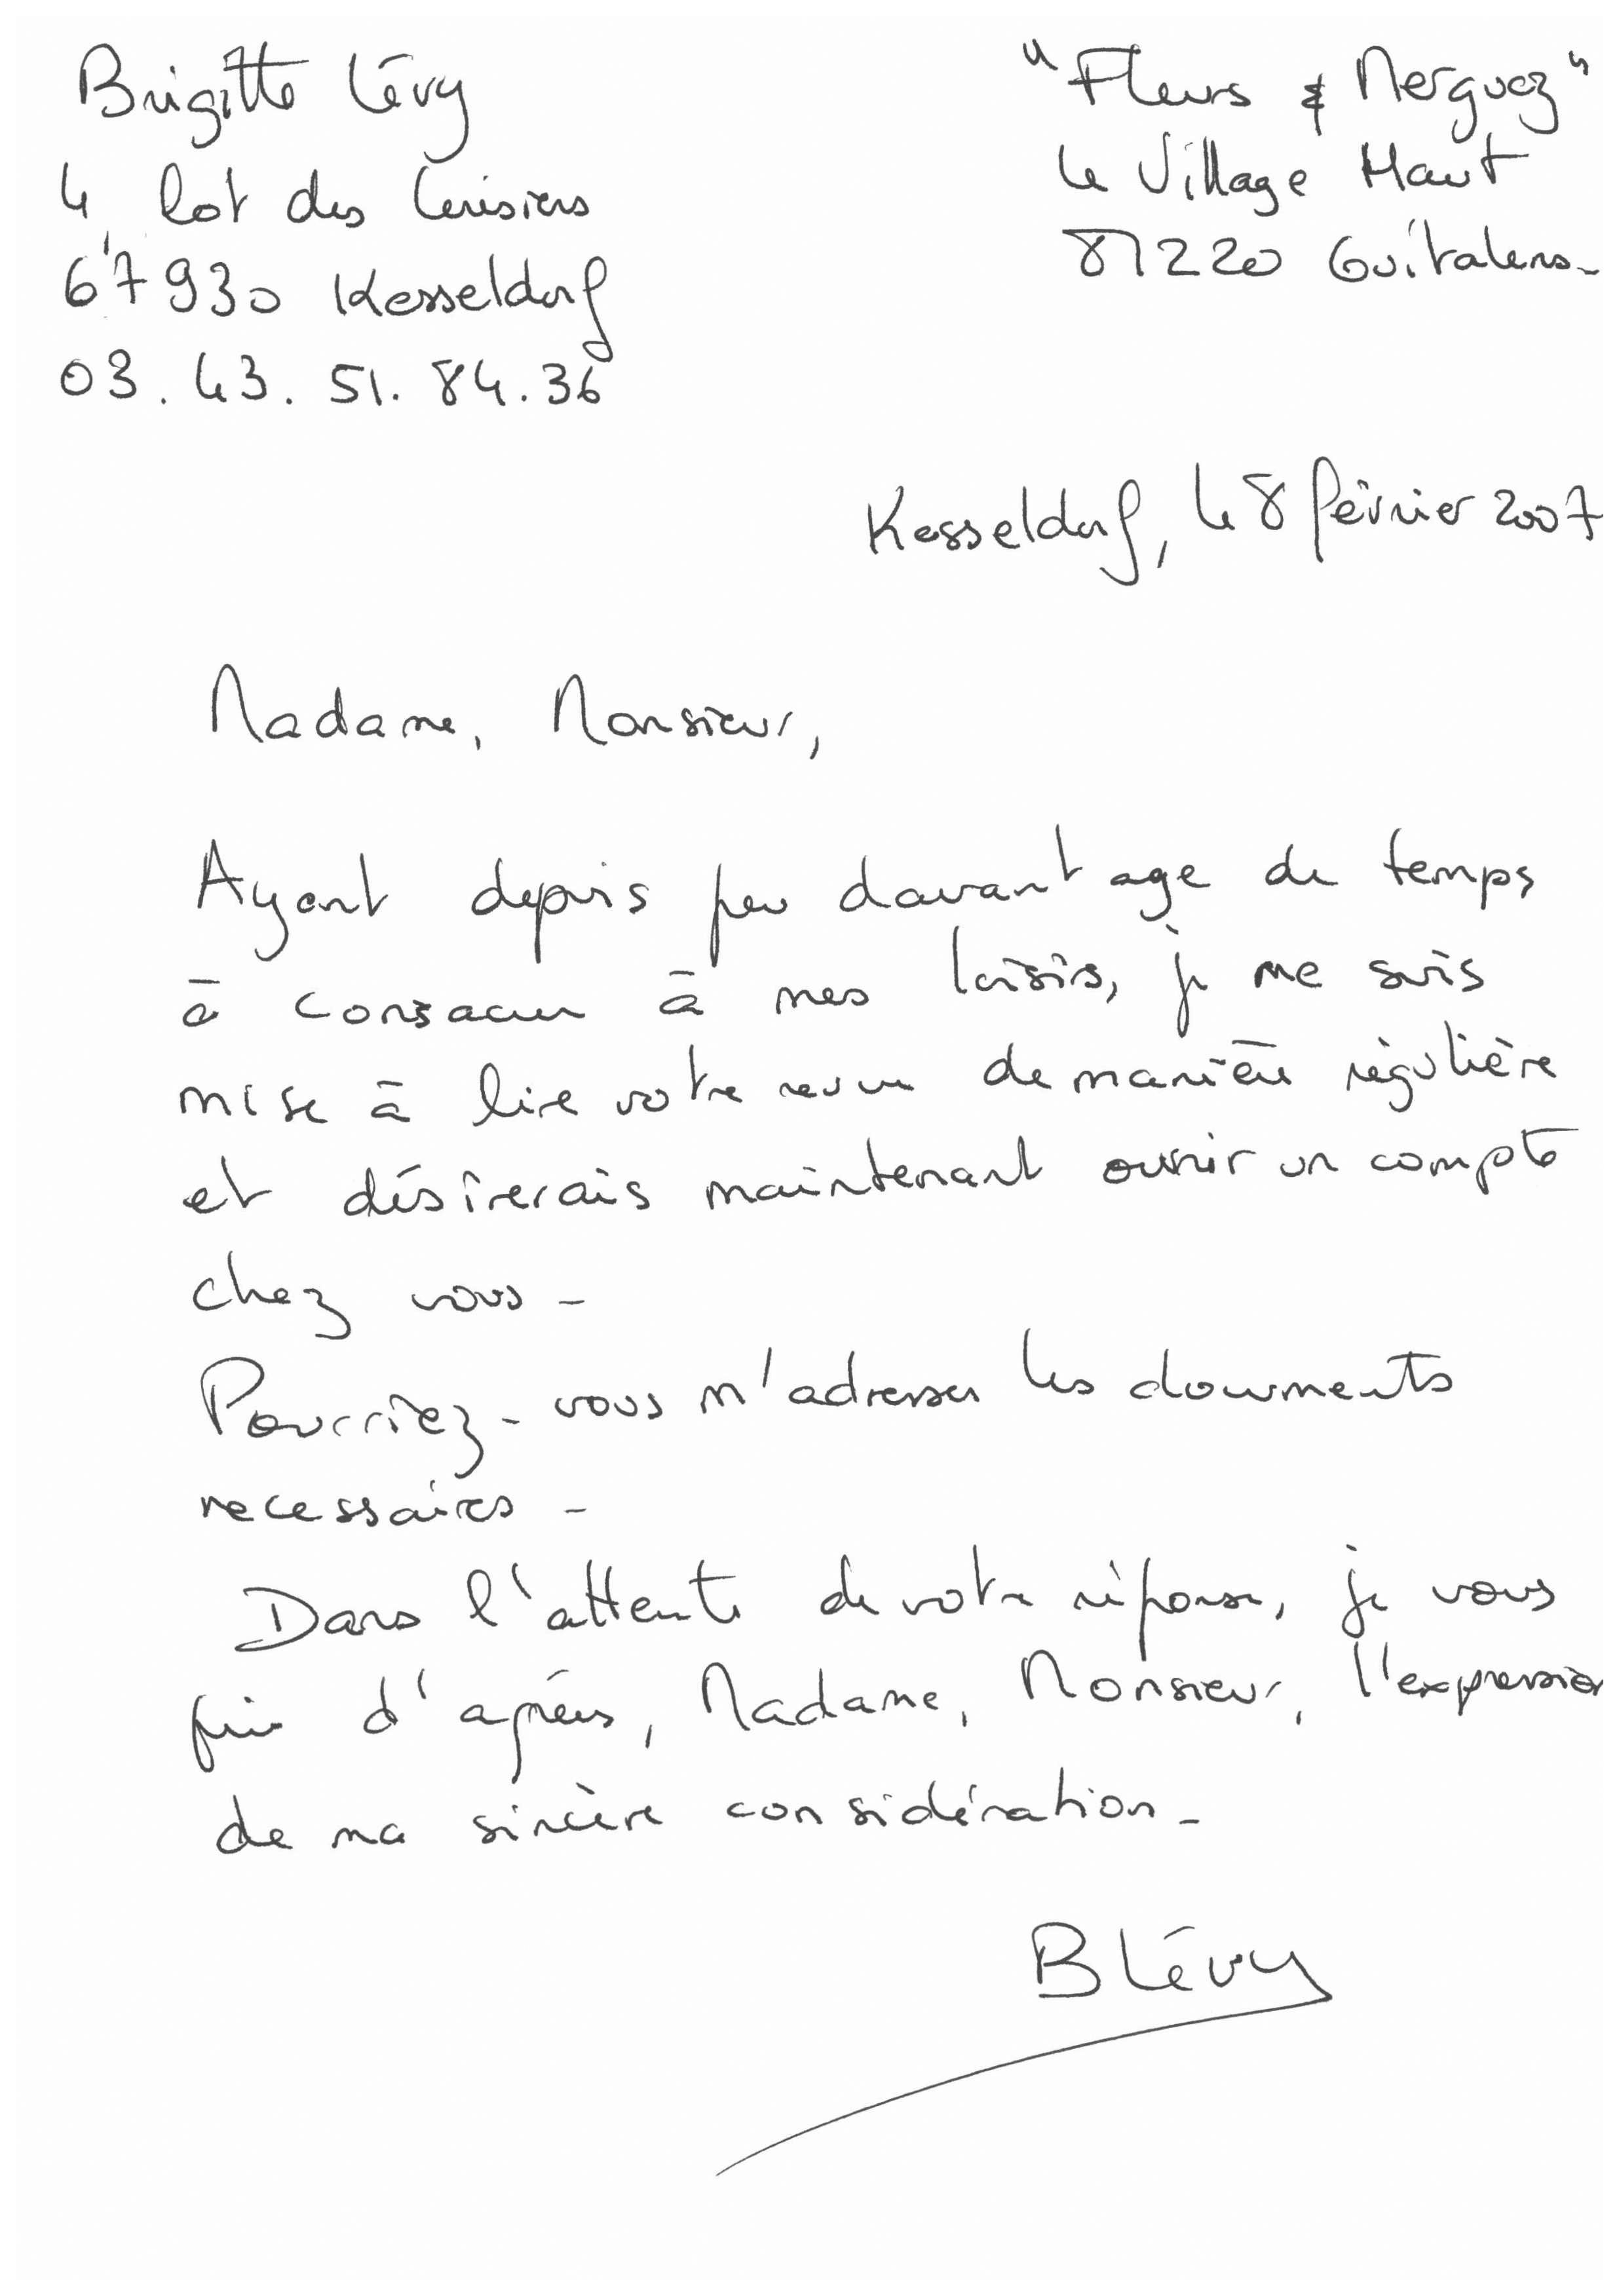 Brigitte Lévy
4, lot des Cerisiers
67930 Kesseldorf
03.43.51.84.36
"Fleurs & Merguez"
Le Village Haut
81220 Guitalens-
Kesseldorf, le 8 février 2007
Madame, Monsieur,
Ayant depuis peu davantage de temps
à consacrer à mes loisirs, je me suis
mise à lire votre revue de manière régulière
et désirerais maintenant ouvrir un compte
chez vous -
Pourriez-vous m'adresser les documents
necessaires -
Dans l'attente de votre réponse, je vous
prie d'agréer, Madame, Monsieur, l'expression
de ma sincère considération -
B Lévy